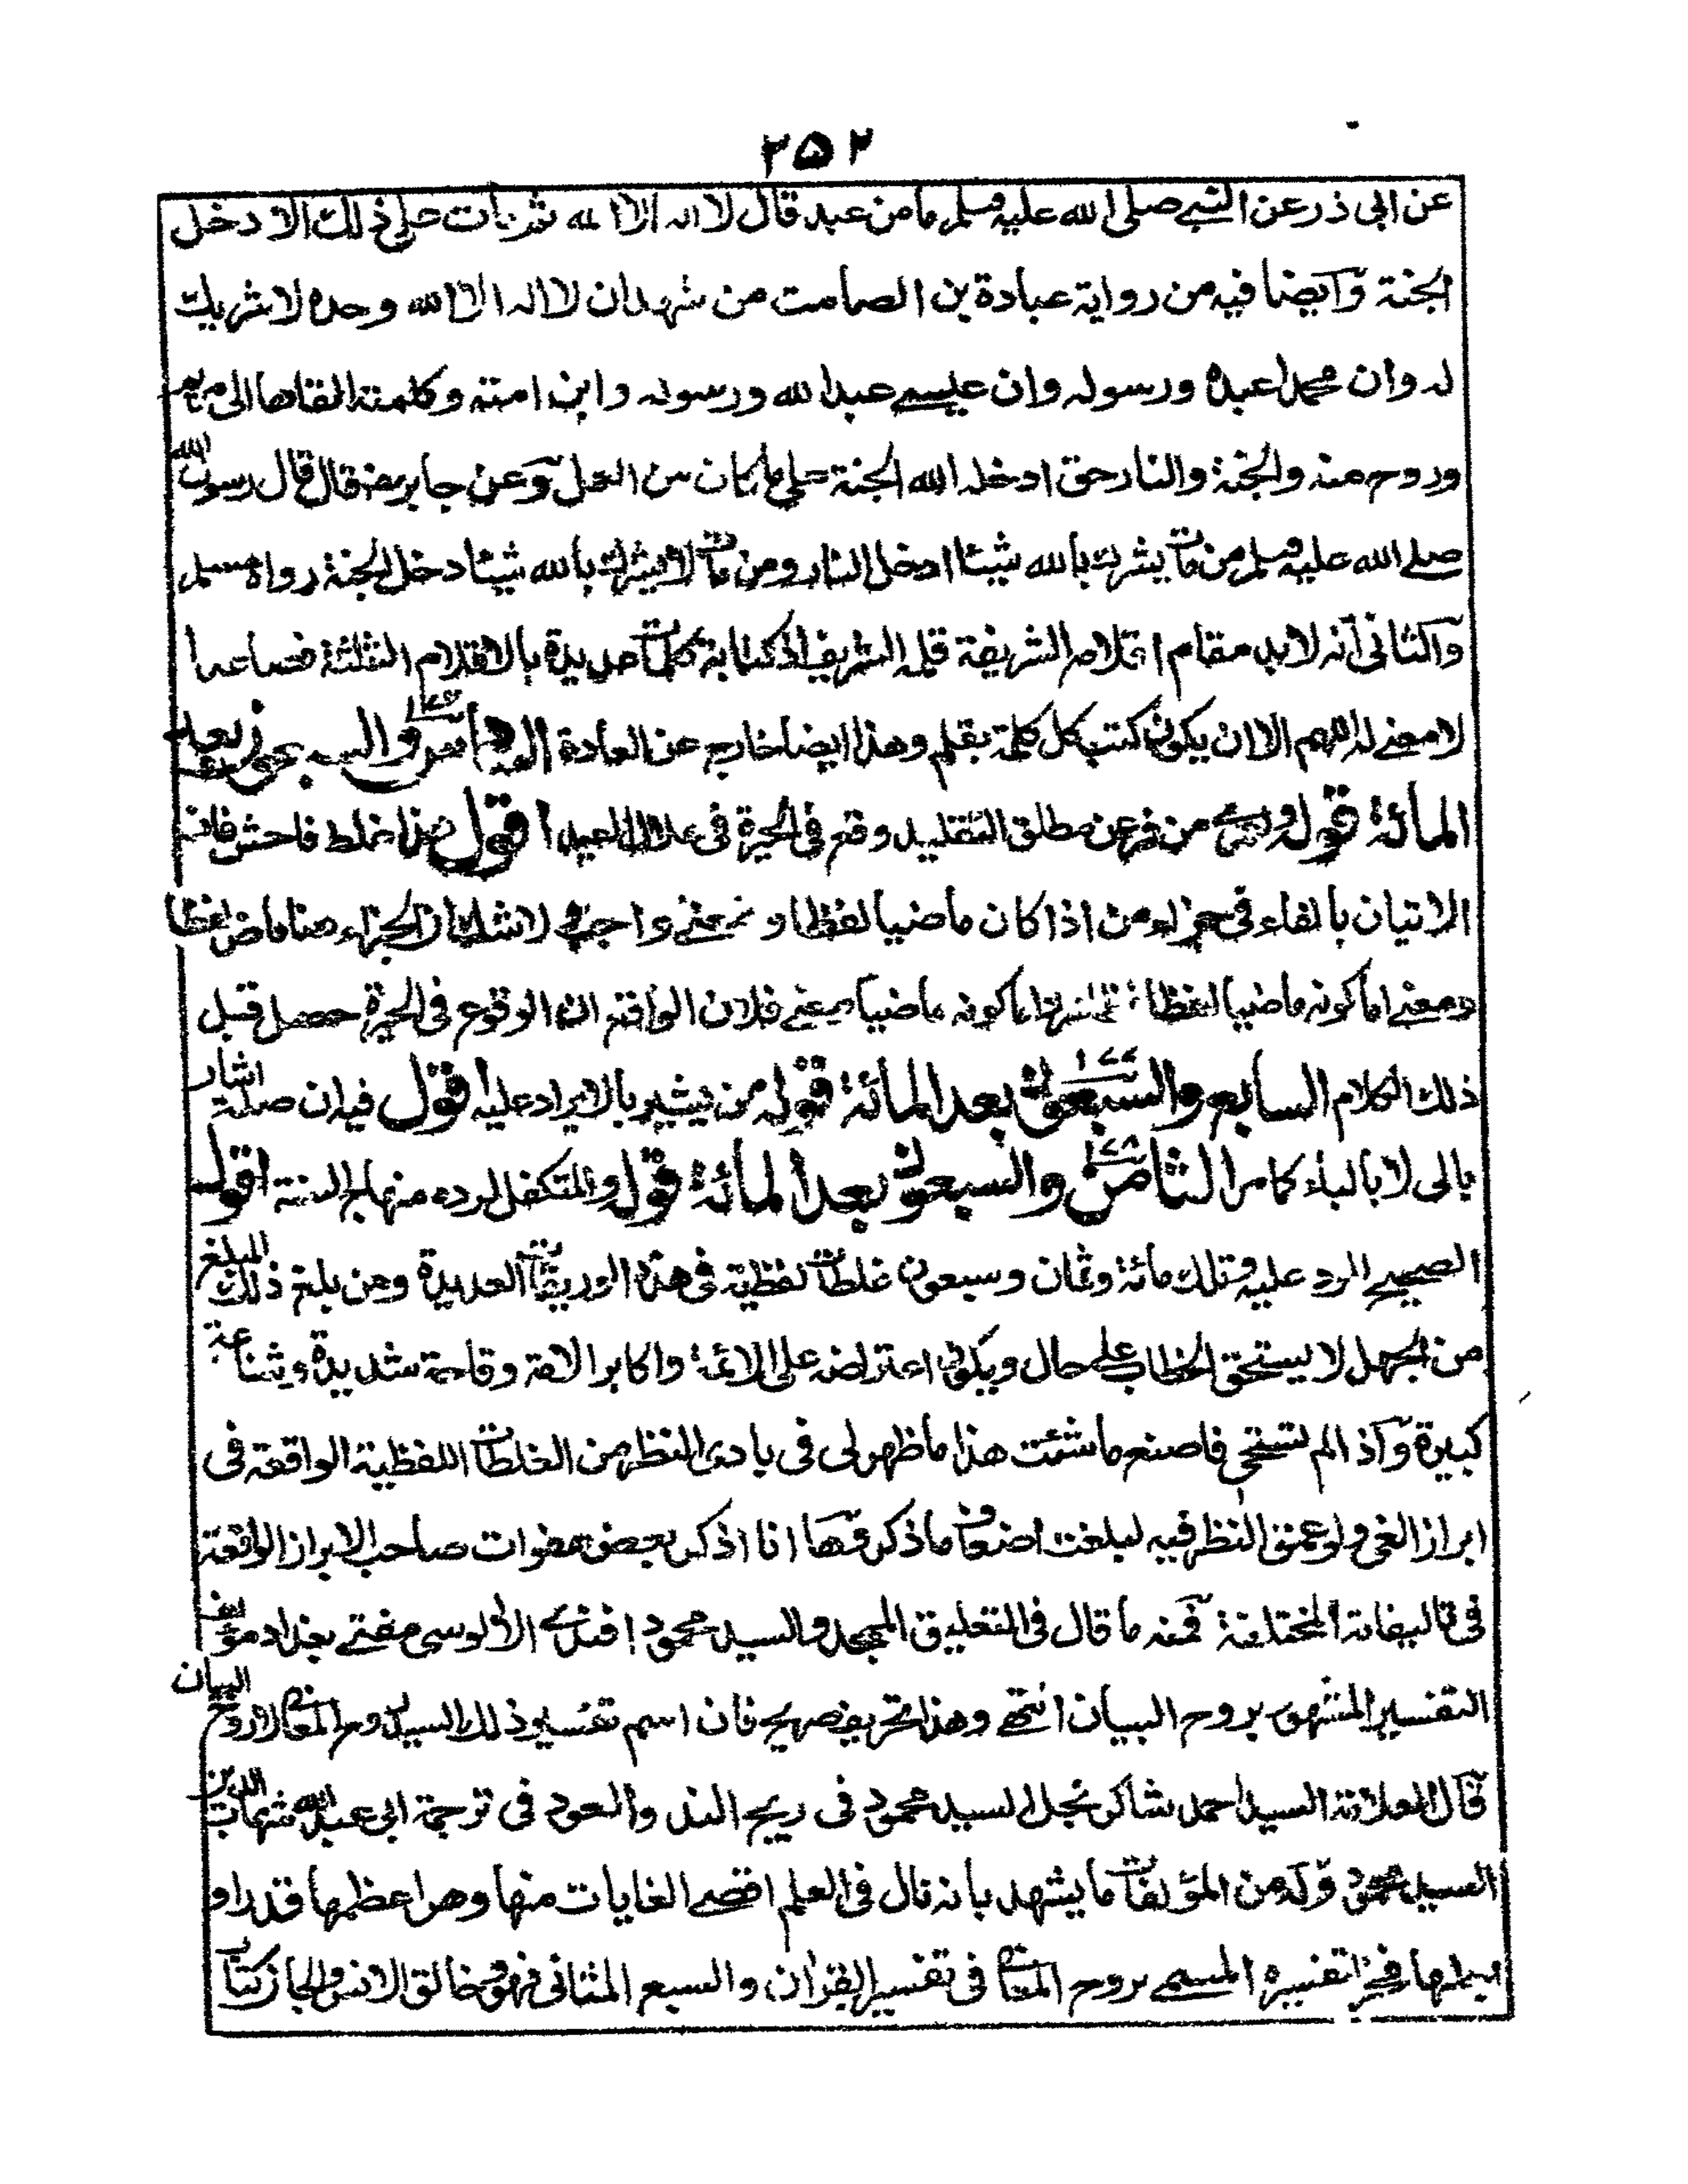 ٢٥٢
عن ابى ذر عن النبے صلى الله عليه وسلم ما من عبد قال لا اله الا الله ثم مات على ذلك الا دخل
الجنة وآيضا فيه من رواية عبادة بن الصامت من شهد ان لا اله الا الله وحده لا شريك
له وان محمدا عبده ورسوله وان عيسے عبد الله ورسوله وابن امته وكلمته القاها الى مريم
وروح منه والجنة والنار حق ادخله الله الجنة على ما كان من العمل وَعن جابر رضہ قال قال رسول الله
صلے الله عليه وسلم من مات يشرك بالله شيئا دخل النار ومن مات لا يشرك بالله شيئا دخل الجنة رواه مسلم
وآلثانى آنه لا بد مقام اقلامہ الشريفة قلمه الشريف اذ كتابة كلمات عديدة بالاقلام الثلثة فصاعدا
لا معنے له اللهم الا ان يكون كتب كل كلمة بقلم وهذا ايضا خارج عن العادة السادس والسبعون بعد
المائة قوله من فر عن مطلق التقليد وقع فى الحيرة فى ضلال بعيد اقول هذا غلط فاحش فان
الاتيان بالفاء فى جزاء من اذا كان ماضيا لفظا ومعنے واجب ولا شك ان الجزاء هنا ماض لفظا
ومعنے اما كونه ماضيا لفظا فظاهر واما كونه ماضيا معنے فلان الواقع ان الوقوع فى الحيرة حصل قبل
ذلك الكلام السابع والسبعون ١٧٧ بعد المائة قوله من يشير بالايراد عليه اقول فيه ان صلة اشار
بالى لا بالباء كما مر الثامن ١٧٨ والسبعون بعد المائة قوله والمتكفل لرده منهاج السنة اقول
الصحيح الرد عليه وتلك مائة وثمان وسبعون غلطات لفظية فى هذه الوريقات العديدة ومن بلغ ذلك المبلغ
من الجهل لا يستحق الخطاب على حال ويكون اعتراضه على الائمة واكابر الامة وقاحة شديدة وشناعة
كبيرة وآذا لم تستحى فاصنع ما شئت هذا ما ظهر لى فى بادى النظر من الغلطات اللفظية الواقعة فى
ابراز الغى ولو عمق النظر فيه لبلغت اضعاف ما ذكر وها انا اذكر بعض هفوات صاحب الابراز الواقعة
فى تاليفاته المختلفة فمنه ما قال فى التعليق الممجد والسيد محمود افندى الالوسى مفتے بغداد مؤلف
التفسير المشهور بروح البيان انتهے وهذا تحريف صريح فان اسم تفسير ذلك السيد روح المعانى لا روح البيان
قال العلامة السيد احمد شاكر نجل السيد محمود فى ريح الند والعود فى ترجمة ابى عبد الله شهاب الدين
السيد محمود وَله من المؤلفات ما يشهد بانه نال فى العلم اقصے الغايات منها وهو اعظمها قدرا و
فخرا تفسيره المسمے بروح المعانى فى تفسير القران والسبع المثانى فهو وخالق الانس والجان كتاب